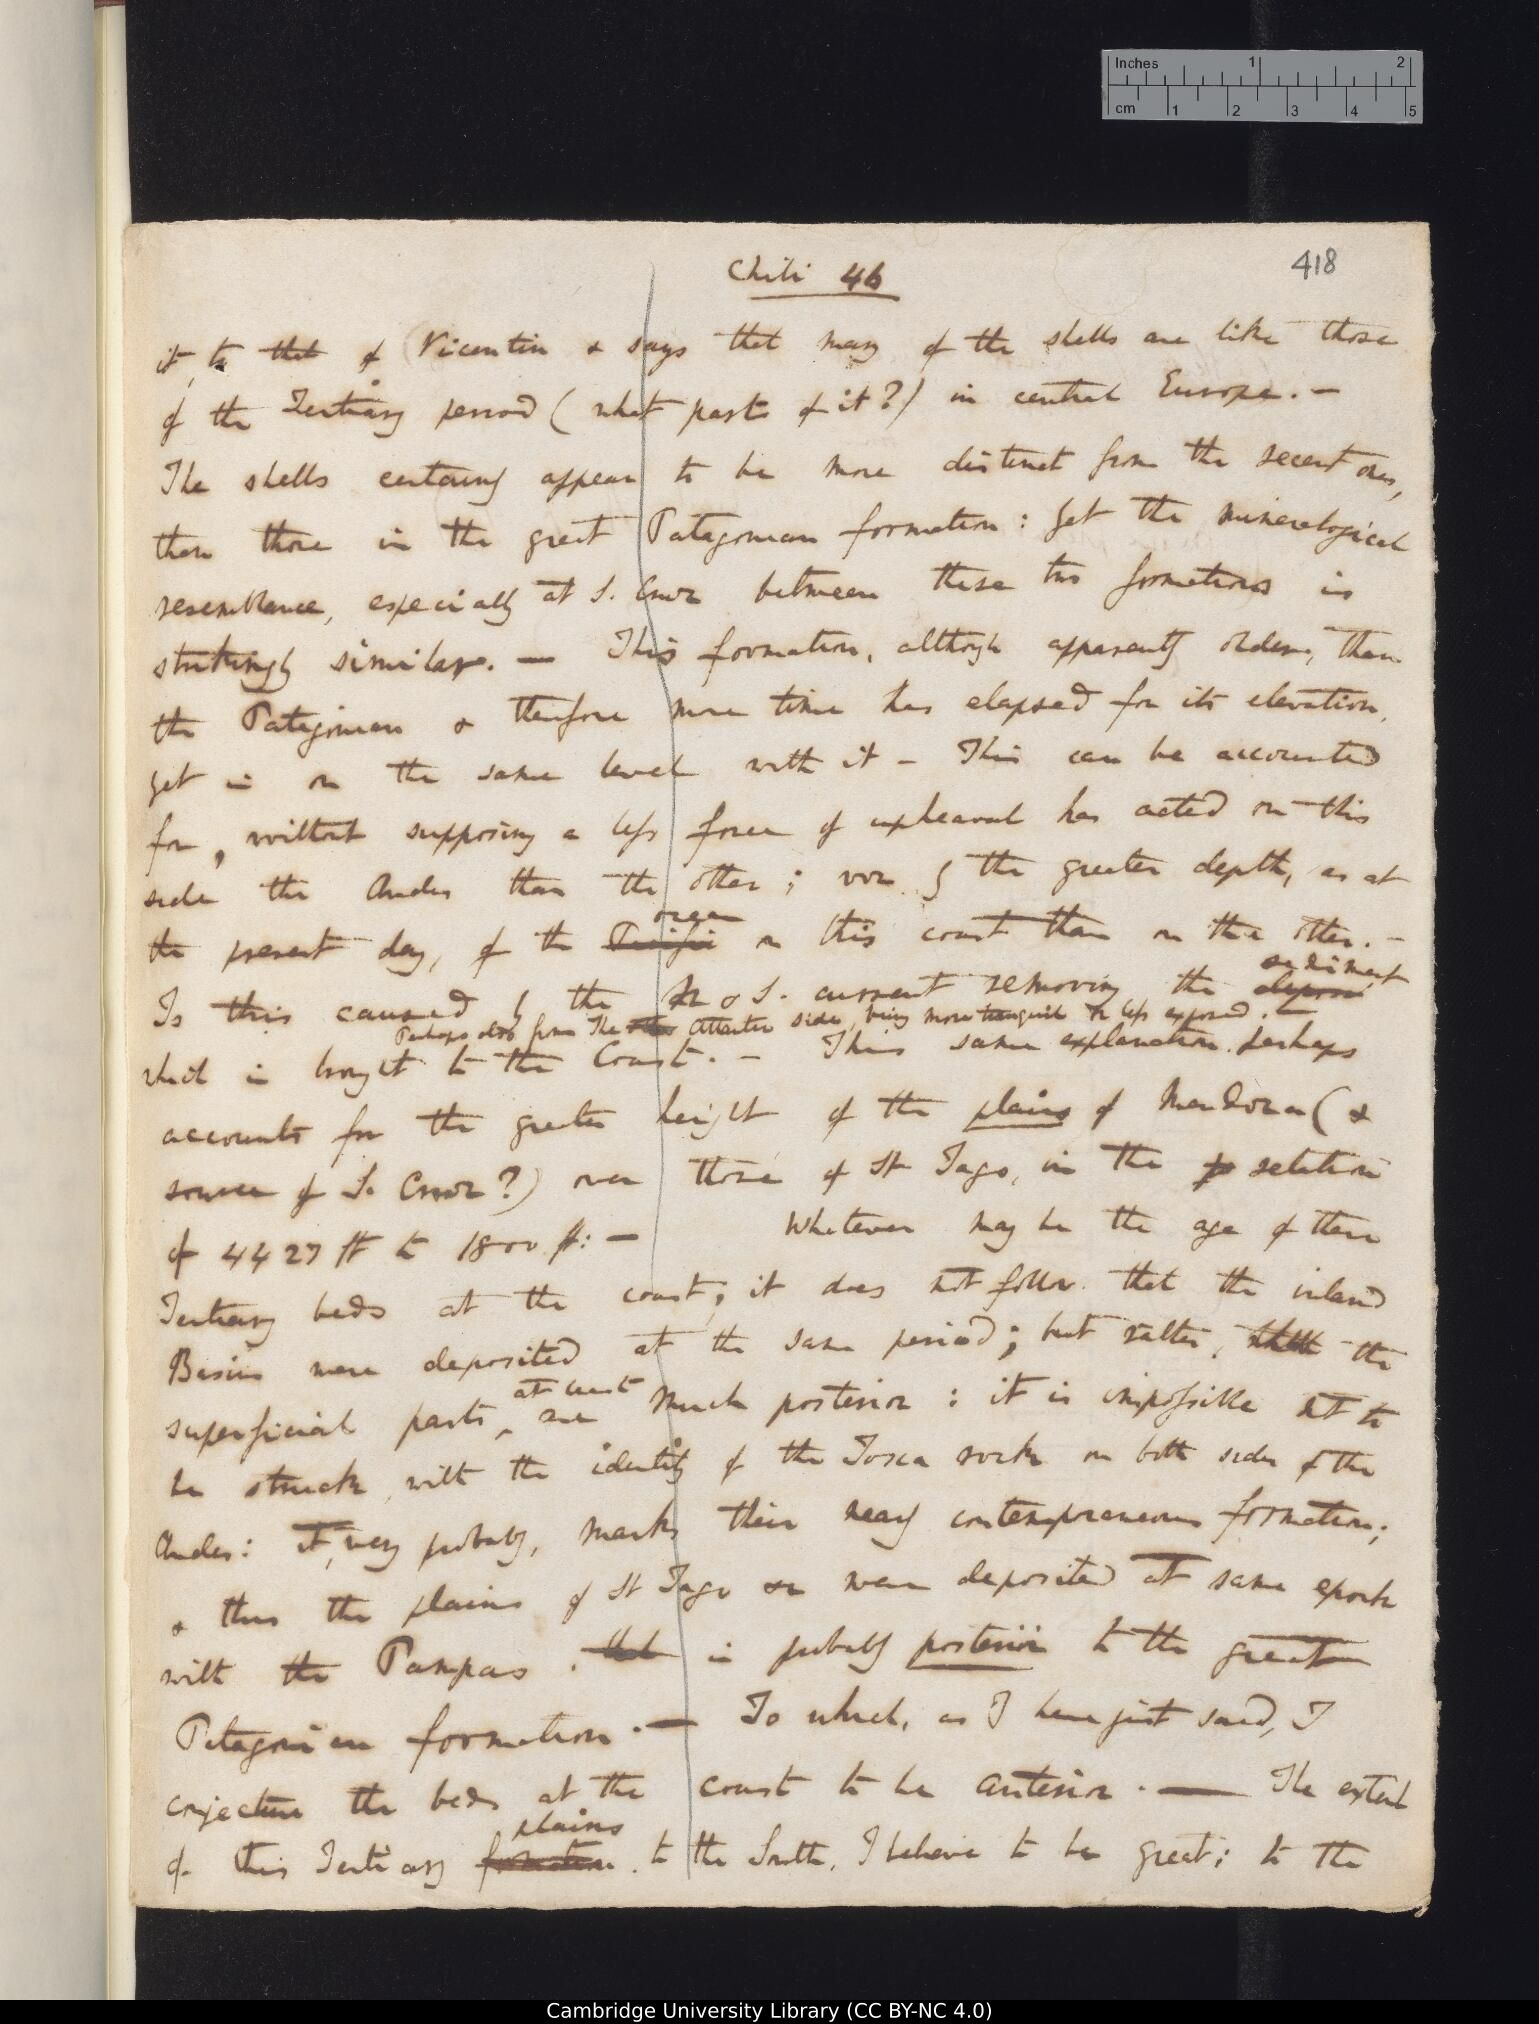 Inches 1 2
cm 1 2 3 4 5
Chili 46
418
it, to that of Vicentin & says that many of the shells are like those
of the Tertiary period (what parts of it?) in central Europe. —
The shells certainly appear to be more distinct from the recent ones,
than those in the great Patagonian formation: yet the mineralogical
resemblance, especially at S. Cruz between these two formations is
strikingly similar. — This formation, although apparently older, than
the Patagonian & therefore more time has elapsed for its elevation,
yet is on the same level with it — This can be accounted
for, without supposing a less force of upheaval has acted on this
side the Andes than the other; viz. by the greater depth, as at
ocean
the present day, of the Pacific on this coast than on the other. —
sediment
Is this caused by the N & S. current removing the deposi
Perhaps also from the other Atlantic side, being more tranquil or less exposed. —
which is brought to the Coast. — This same explanation perhaps
accounts for the greater height of the plains of Mendoza (&
source of S. Cruz?) over those of St Jago, in the relation
of 4427 ft to 1800 ft: — Whatever may be the age of these
Tertiary beds at the coast; it does not follow that the inland
Basins were deposited at the same period; but rather, the
at least
superficial parts, are much posterior: it is impossible not to
be struck, with the identity of the Tosca rock on both sides of the
Andes: it, very probably, marks their nearly contemporaneous formation;
& thus the plains of St Jago were deposited at same epoch
with the Pampas. that is probably posterior to the great
Patagonian formation. — To which, as I have just said, I
conjecture the beds at the coast to be anterior. — The extent
plains
of this Tertiary formation to the South, I believe to be great; to the
Cambridge University Library (CC BY-NC 4.0)